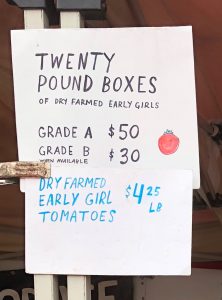 TWENTY
POUND BOXES
OF DRY FARMED EARLY GIRLS
GRADE A $50
GRADE B $30
WHEN AVAILABLE
DRY FARMED
EARLY GIRL $4 25
TOMATOES LB